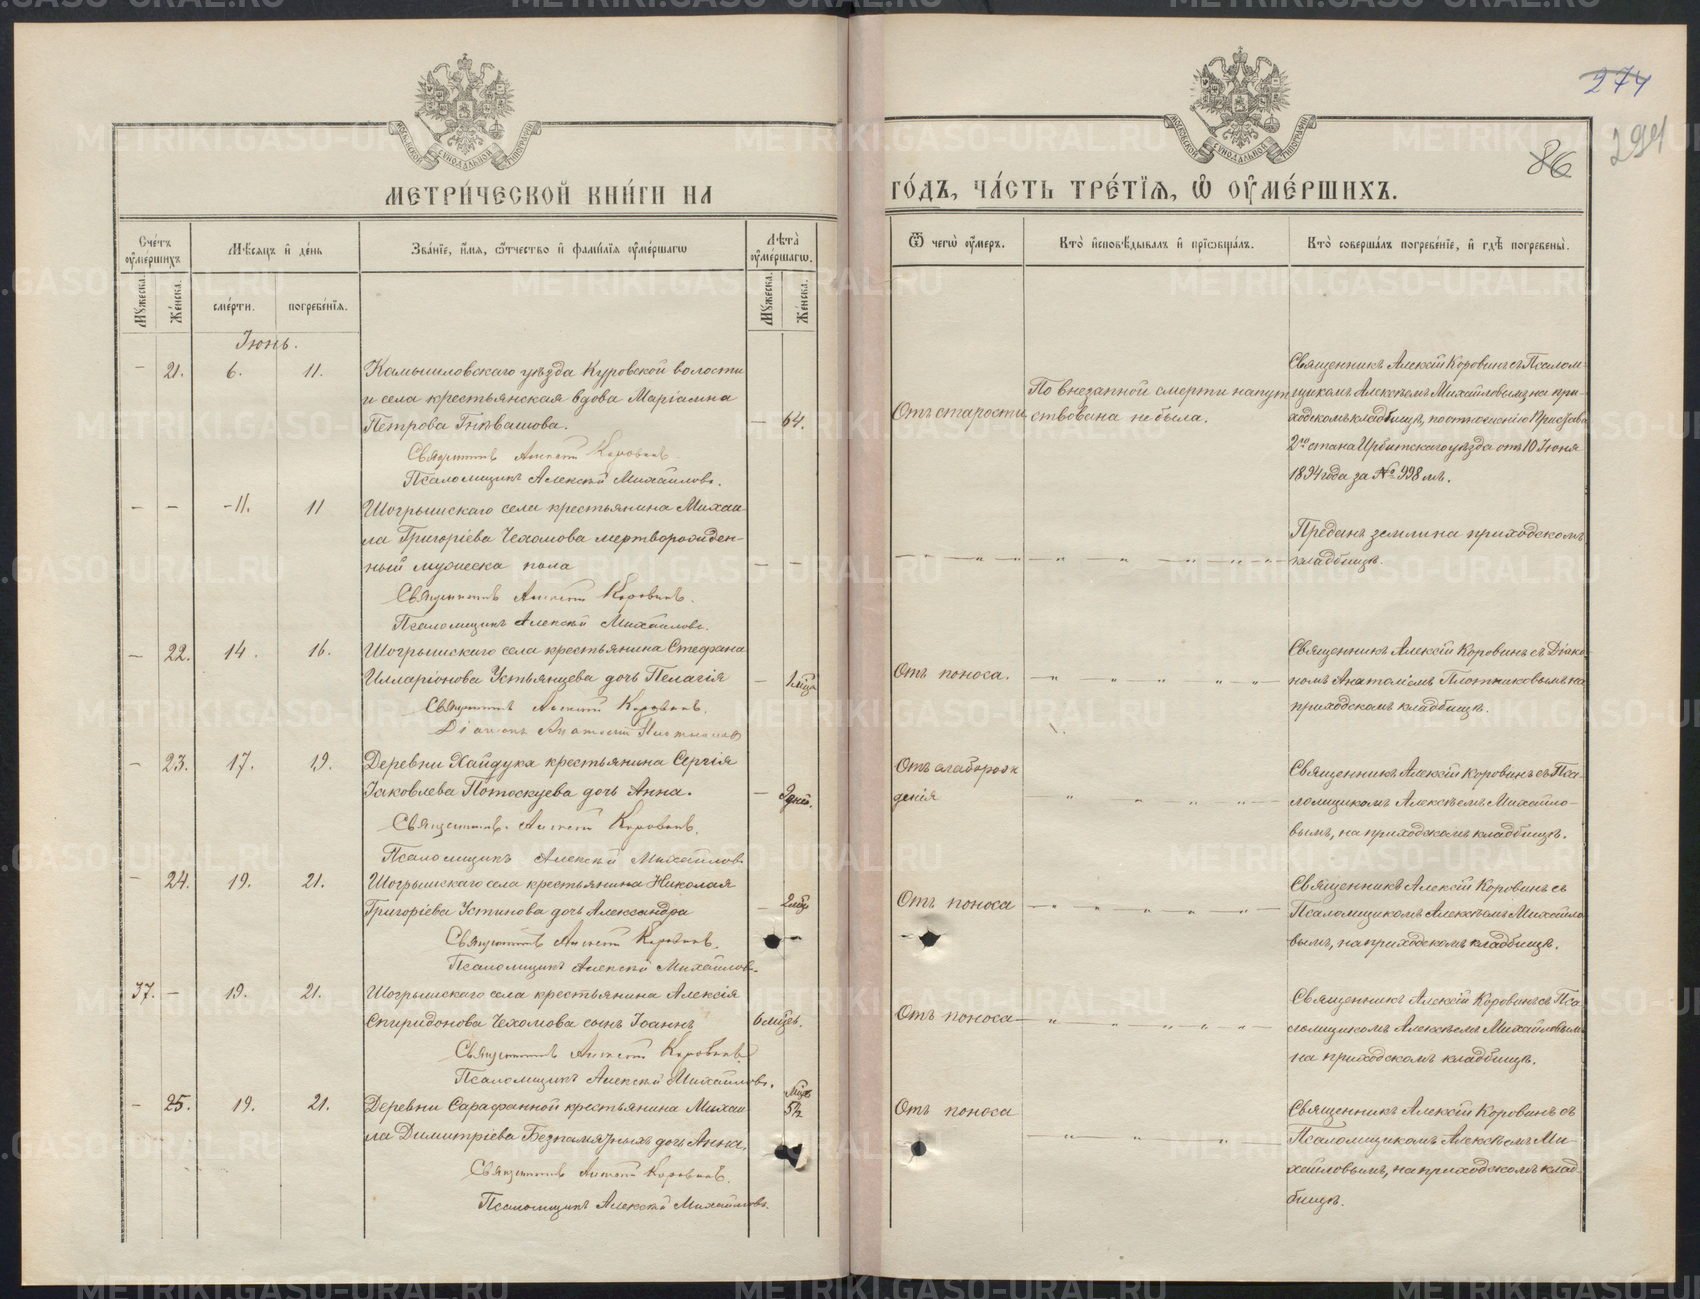 274
294
86
МОСКОВСКОЙ СѴНОДАЛЬНОЙ ТИПОГРАФІИ
МОСКОВСКОЙ СѴНОДАЛЬНОЙ ТИПОГРАФІИ
МЕТРИ́ЧЕСКОЙ КНИ́ГИ НА
ГО́ДЪ, ЧА́СТЬ ТРЕ́ТІѦ, Ѡ҆ ОУ҆МЕ́РШИХЪ.
Сче́тъ оу҆ме́ршихъ
Мѣ́сяцъ и҆ де́нь
Зва́нїе, и҆́мя, ѻ҆́тчество и҆ фами́лїя оу҆ме́ршагѡ
Лѣ́та оу҆ме́ршагѡ.
Ѿ чегѡ̀ оу҆́меръ.
Кто̀ и҆сповѣ́дывалъ и҆ прїѡбща́лъ.
Кто̀ соверша́лъ погребе́нїе, и҆ гдѣ̀ погребены̀.
Му́жеска.
Же́нска.
сме́рти.
погребе́нїя.
Му́жеска.
Же́нска.
Іюнь.
– 21. 6. 11.
Камышловскаго уѣзда Куровской волости
и села крестьянская вдова Маріамна
Петрова Гнѣвашова. — 64.
Священникъ Алексій Коровинъ.
Псаломщикъ Алексѣй Михайловъ.
Отъ старости
По внезапной смерти напут-
ствована не была.
Священникъ Алексій Коровинъ съ Псалом-
щикомъ Алексѣемъ Михайловымъ на при-
ходскомъ кладбищѣ, по отношенію Пристава
2го стана Ирбитскаго уѣзда отъ 10 Іюня
1894 года за № 998мъ.
– – – 11. 11
Шогрышскаго села крестьянина Михаи-
ла Григоріева Чехомова мертворожден-
ный мужеска пола — –
Священникъ Алексій Коровинъ.
Псаломщикъ Алексѣй Михайловъ.
Преданъ земли на приходскомъ
кладбищѣ.
— 22. 14. 16.
Шогрышскаго села крестьянина Стефана
Илларіонова Устьянцева дочь Пелагія — 1 мѣс.
Священникъ Алексій Коровинъ.
Діаконъ Анатолій Плотниковъ
Отъ поноса.
Священникъ Алексій Коровинъ съ Діако-
номъ Анатоліемъ Плотниковымъ на
приходскомъ кладбищѣ.
– 23. 17. 19.
Деревни Хайдука крестьянина Сергія
Іаковлева Потоскуева дочь Анна. — дней.
Священникъ Алексій Коровинъ.
Псаломщикъ Алексѣй Михайловъ
Отъ слаборож-
денія
Священникъ Алексій Коровинъ съ Пса-
ломщикомъ Алексѣемъ Михайло-
вымъ, на приходскомъ кладбищѣ.
– 24. 19. 21.
Шогрышскаго села крестьянина Николая
Григоріева Устинова дочь Александра — 2 мѣс.
Священникъ Алексій Коровинъ.
Псаломщикъ Алексѣй Михайловъ.
Отъ поноса
Священникъ Алексій Коровинъ съ
Псаломщикомъ Алексѣемъ Михайло-
вымъ, на приходскомъ кладбищѣ.
37. – 19. 21.
Шогрышскаго села крестьянина Алексія
Спиридонова Чехомова сынъ Іоаннъ 6 мѣсц.
Священникъ Алексій Коровинъ
Псаломщикъ Алексѣй Михайловъ.
Отъ поноса
Священникъ Алексій Коровинъ съ Пса-
ломщикомъ Алексѣемъ Михайловымъ
на приходскомъ кладбищѣ.
– 25. 19. 21.
Деревни Сарафанной крестьянина Михаи-
ла Димитріева Безпамятныхъ дочь Анна. мѣс. 5½
Священникъ Алексій Коровинъ.
Псаломщикъ Алексѣй Михайловъ.
Отъ поноса
Священникъ Алексій Коровинъ съ
Псаломщикомъ Алексѣемъ Ми-
хайловымъ, на приходскомъ клад-
бищѣ.
METRIKI.GASO-URAL.RU